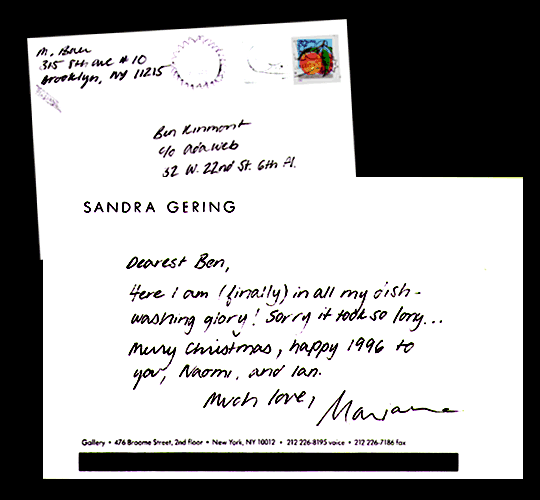 M. Boer
315 8th ave # 10
Brooklyn, NY 11215
Ben Kinmont
c/o adaweb
32 W. 22nd St. 6th Fl.
SANDRA GERING
Dearest Ben,
Here I am (finally) in all my dish-
washing glory! Sorry it took so long...
Merry Christmas, happy 1996 to
you, Naomi, and Ian.
Much love,
Gallery • 476 Broome Street, 2nd floor • New York, NY 10012 • 212 226-8195 voice • 212 226-7186 fax